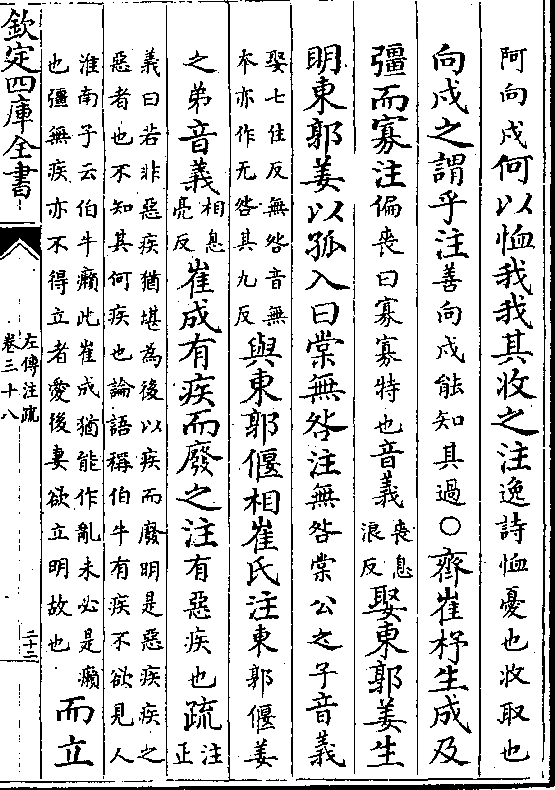 阿向戍何以恤我我其收之注逸詩恤憂也收取也
向戍之謂乎注善向戍能知其過○齊崔杼生成及
彊而寡注偏喪曰寡寡特也音義喪息浪反娶東郭姜生
明東郭姜以孤入曰棠無咎注無咎棠公之子音義
娶七住反無咎音無本亦作无咎其九反與東郭偃相崔氏注東郭偃姜
之弟音義相息亮反崔成有疾而廢之注有惡疾也疏注正
義曰若非惡疾猶堪為後以疾而廢明是惡疾疾之
惡者也不知其何疾也論語稱伯牛有疾不欲見人
淮南子云伯牛癩此崔成猶能作亂未必是癩
也彊無疾亦不得立者愛後妻欲立明故也而立
欽定四庫全書
左傳注疏
卷三十八
二十三